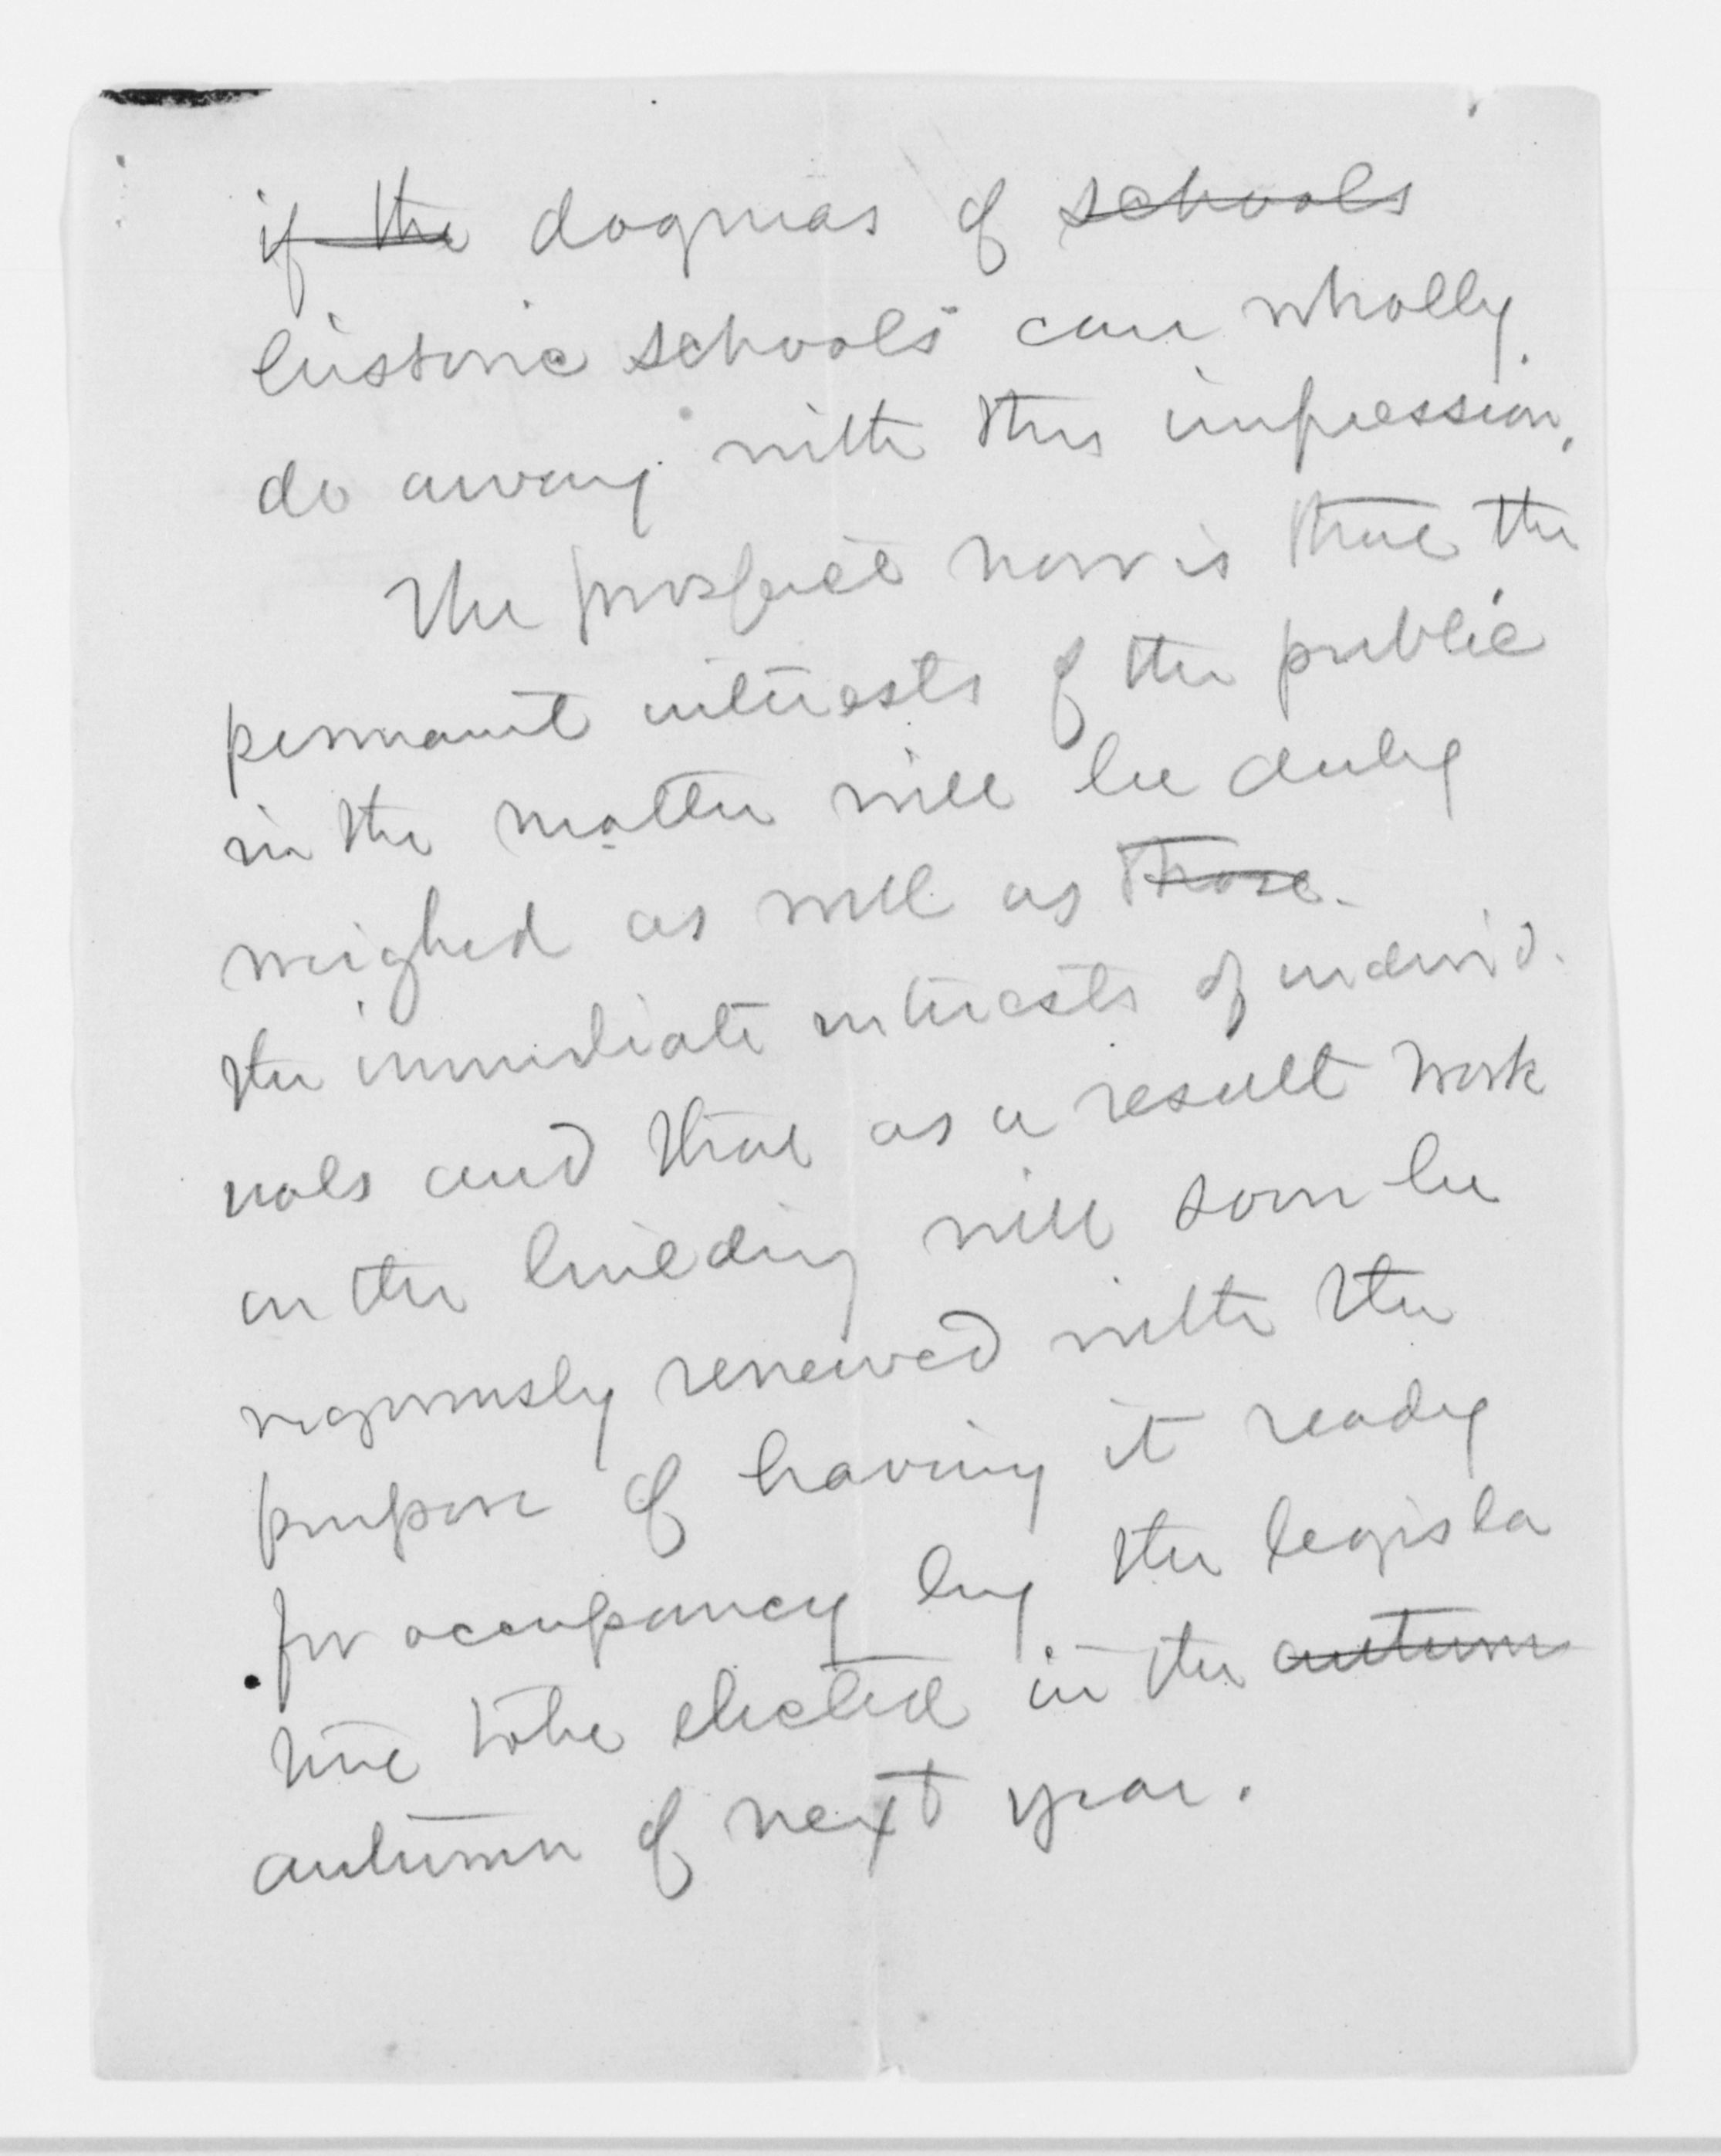 if the dogmas of schools
historic schools can wholly
do away with this impression.
The prospect now is that the
permanent interests of the public
in the matter will be duly
weighed as well as those
the immediate interests of individ-
uals and that as a result work
on the building will soon be
vigorously renewed with the
purpose of having it ready
for occupancy by the legisla
ture to be elected in the autumn
autumn of next year.